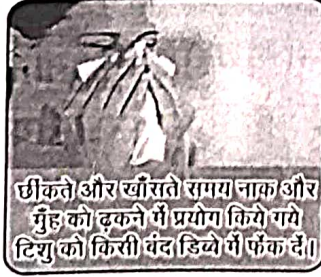 छींकते और खाँसते समय नाक और
मुँह को ढ़कने में प्रयोग किये गये
टिशु को किसी बंद डिब्बे में फेंक दें।